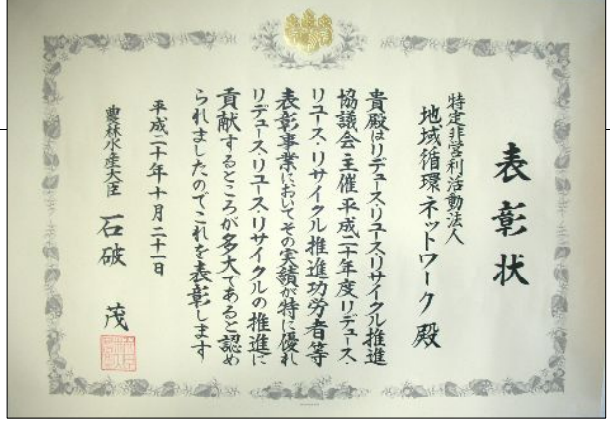 表彰状
特定非営利活動法人
地域循環ネットワーク殿
貴殿はリデュース・リユース・リサイクル推進
協議会主催平成二十年度リデュース・
リユース・リサイクル推進功労者等
表彰事業においてその実績が特に優れ
リデュース・リユース・リサイクルの推進に
貢献するところが多大であると認め
られましたのでこれを表彰します
平成二十年十月二十一日
農林水産大臣 石破 茂